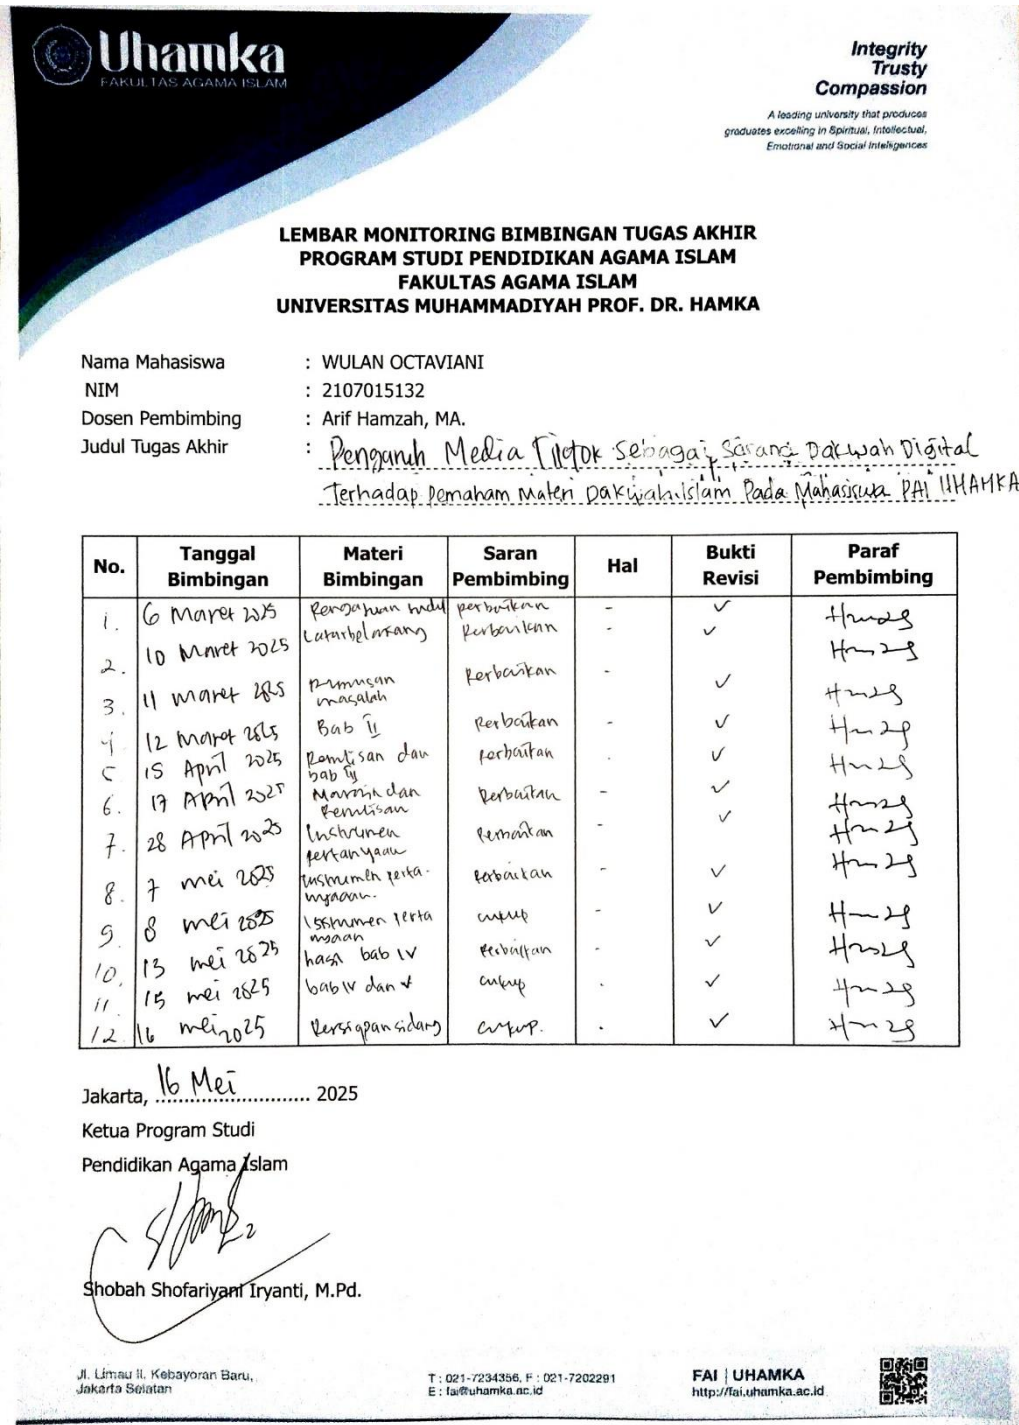 Uhamka
FAKULTAS AGAMA ISLAM
Integrity
Trusty
Compassion
A leading university that produces
graduates excelling in Spiritual, Intellectual,
Emotional and Social Intelligences
LEMBAR MONITORING BIMBINGAN TUGAS AKHIR
PROGRAM STUDI PENDIDIKAN AGAMA ISLAM
FAKULTAS AGAMA ISLAM
UNIVERSITAS MUHAMMADIYAH PROF. DR. HAMKA
Nama Mahasiswa : WULAN OCTAVIANI
NIM : 2107015132
Dosen Pembimbing : Arif Hamzah, MA.
Judul Tugas Akhir : Pengaruh Media Tiktok Sebagai Sarana Dakwah Digital
Terhadap Pemaham Materi Dakwah Islam Pada Mahasiswa PAI UHAMKA
No. Tanggal Bimbingan Materi Bimbingan Saran Pembimbing Hal Bukti Revisi Paraf Pembimbing
1. 6 Maret 2025 Pengajuan Judul perbaikan - ✓
2. 10 Maret 2025 Latarbelakang Perbaikan - ✓
3. 11 maret 2025 rumusan masalah Perbaikan - ✓
4 12 Maret 2025 Bab II Perbaikan - ✓
5 15 April 2025 Penulisan dan bab Perbaikan . ✓
6. 17 April 2025 dan Penulisan Perbaikan - ✓
7. 28 April 2025 Instrumen pertanyaan Perbaikan - ✓
8. 7 mei 2025 instrumen perta- nyaan. Perbaikan - ✓
9 8 mei 2025 perta nyaan cukup - ✓
10. 13 mei 2025 hasil bab IV Perbaikan - ✓
11 15 mei 2025 bab IV dan V cukup . ✓
12. 16 mei 2025 Persiapan sidang cukup. . ✓
Jakarta, 16 Mei 2025
Ketua Program Studi
Pendidikan Agama Islam
Shobah Shofariyani Iryanti, M.Pd.
Jl. Limau II, Kebayoran Baru,
Jakarta Selatan
T : 021-7234356, F : 021-7202291
E : fai@uhamka.ac.id
FAI | UHAMKA
http://fai.uhamka.ac.id